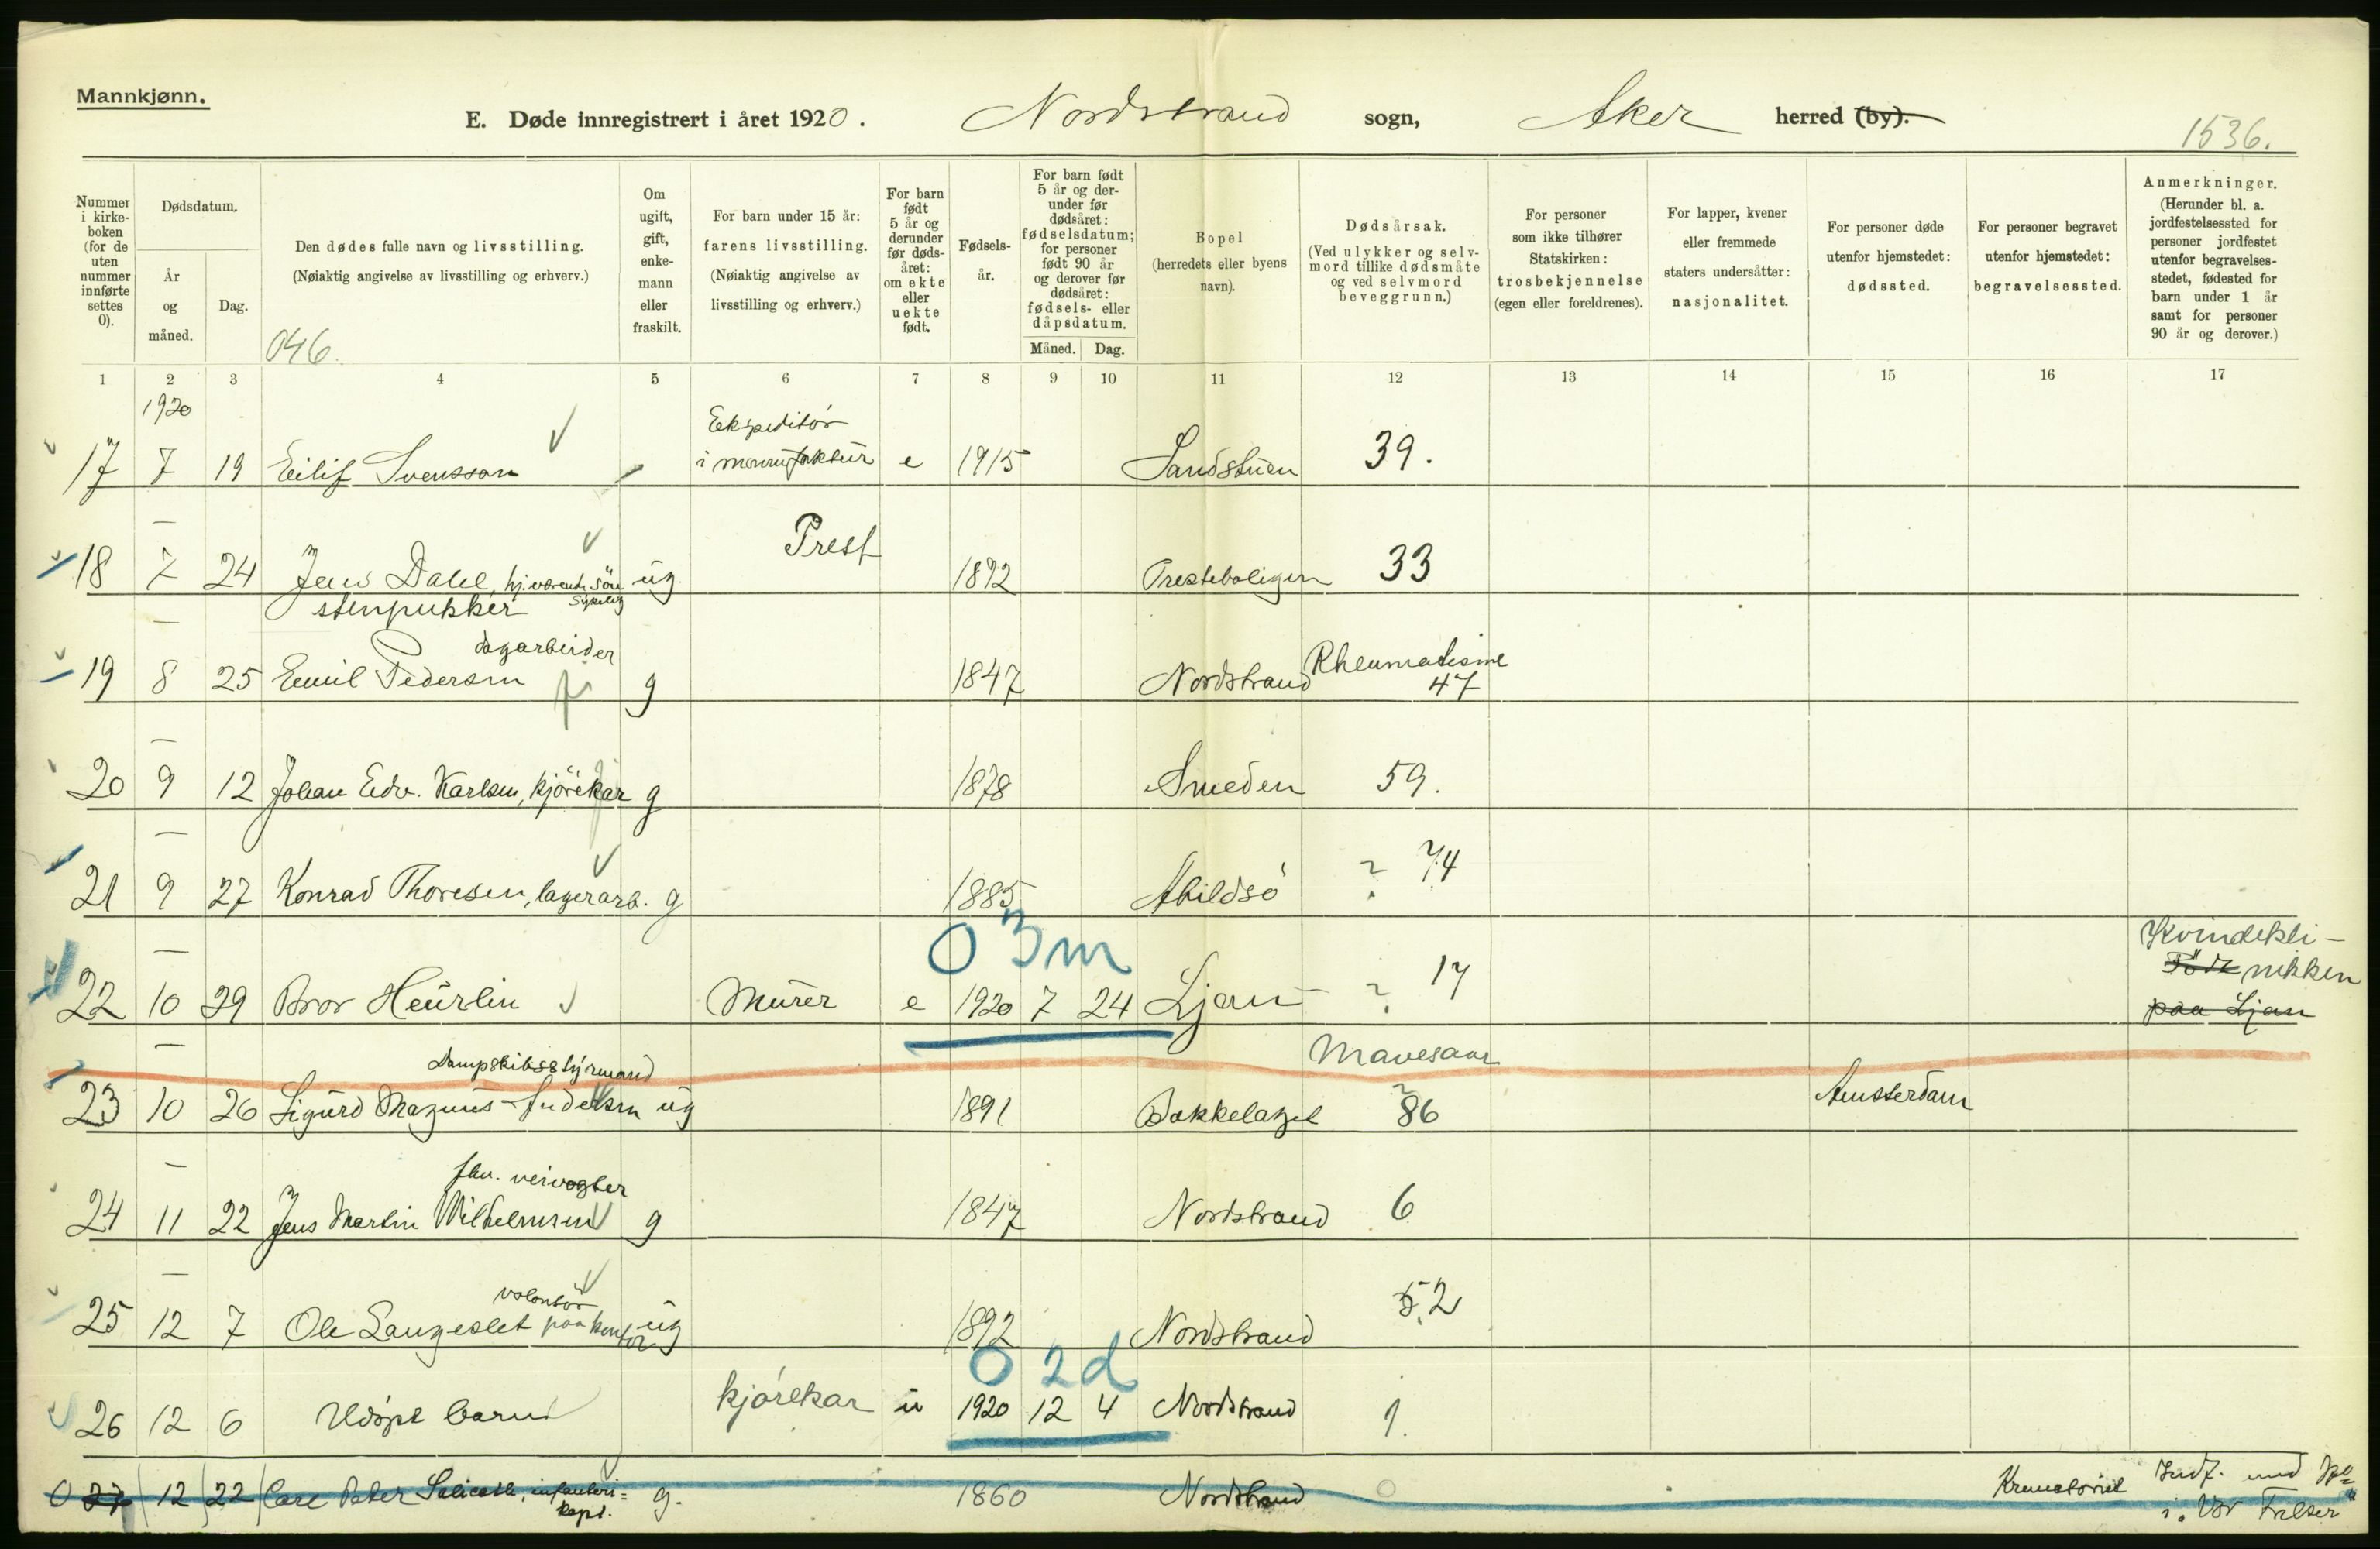 Mannkjønn.
E. Døde innregistrert i året 1920. Nordstrand sogn, Aker herred (by).
1536.
Nummer i kirke-boken (for de uten nummer innførte settes 0).
Dødsdatum.
År og måned.
Dag.
Den dødes fulle navn og livsstilling.
(Nøiaktig angivelse av livsstilling og erhverv.)
046.
Om ugift, gift, enke-mann eller fraskilt.
For barn under 15 år:
farens livsstilling.
(Nøiaktig angivelse av livsstilling og erhverv.)
For barn født 5 år og derunder før døds-året: om ekte eller uekte født.
Fødsels-år.
For barn født 5 år og der-under før dødsåret: fødselsdatum; for personer født 90 år og derover før dødsåret: fødsels- eller dåpsdatum.
Måned. Dag.
Bopel
(herredets eller byens navn).
Dødsårsak.
(Ved ulykker og selv-mord tillike dødsmåte og ved selvmord beveggrunn.)
For personer som ikke tilhører Statskirken: trosbekjennelse (egen eller foreldrenes).
For lapper, kvener eller fremmede staters undersåtter: nasjonalitet.
For personer døde utenfor hjemstedet: dødssted.
For personer begravet utenfor hjemstedet: begravelsessted.
Anmerkninger.
(Herunder bl. a. jordfestelsessted for personer jordfestet utenfor begravelses-stedet, fødested for barn under 1 år samt for personer 90 år og derover.)
1 2 3 4 5 6 7 8 9 10 11 12 13 14 15 16 17
1920
Ekspeditör
17 7 19 Eilif Svensson - i manufaktur e 1915 Sandstuen 39.
Prest
18 7 24 Jens Dahl, hj.værende sön ug 1892 Presteboligen 33
sykelig
stenpukker
dagarbeider Rheumatisme
19 8 25 Emil Pedersen g 1847 Nordstrand 47
20 9 12 Johan Edv. Karlsen, kjörekar g 1878 Smeden 59.
21 9 27 Konrad Thoresen, lagerarb. g 1885 Abildsö ? 74
0 3m Kvindekli-
Föde nikken
22 10 29 Bror Heurlin Murer e 1920 7 24 Ljan ? 17 paa Ljan
Dampskibsstyrmand Mavesaar
23 10 26 Sigurd Magnus Andersen ug 1891 Bækkelaget ? 86 Amsterdam
fhv. veivogter
24 11 22 Jens Martin Wilhelmsen g 1847 Nordstrand 6
volontör
25 12 7 Ole Langeslet paa kontor ug 1892 Nordstrand 52
0 2d
26 12 6 Udöpt barn kjörekar u 1920 12 4 Nordstrand 1.
0 27 12 22 Carl Peter infanteri= g. 1860 Nordstrand 0 Krematoriet Indf. med
kapt. i "Vor Frelser"